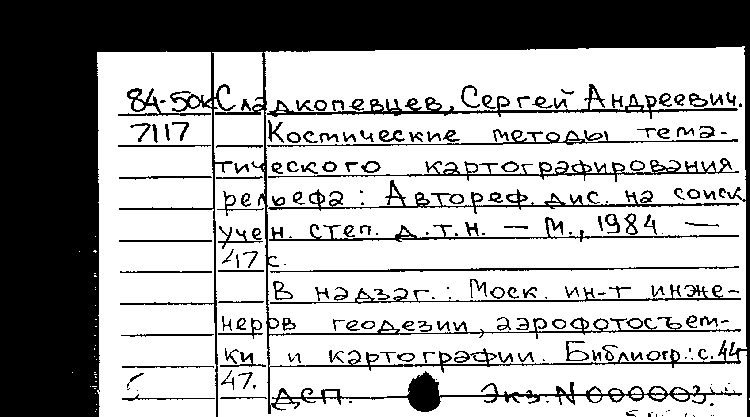 84-50к Сладкопевцев, Сергей Андреевич.
7117 Космические методы тема-
тического картографирования
рельефа : Автореф. дис. на соиск.
учен. степ. д.т.н. — М., 1984 —
47 с.
В надзаг. : Моск. ин-т инже-
неров геодезии, аэрофотосъем-
ки и картографии. Библиогр.: с. 44-
47. ДСП. Экз. N 000003.